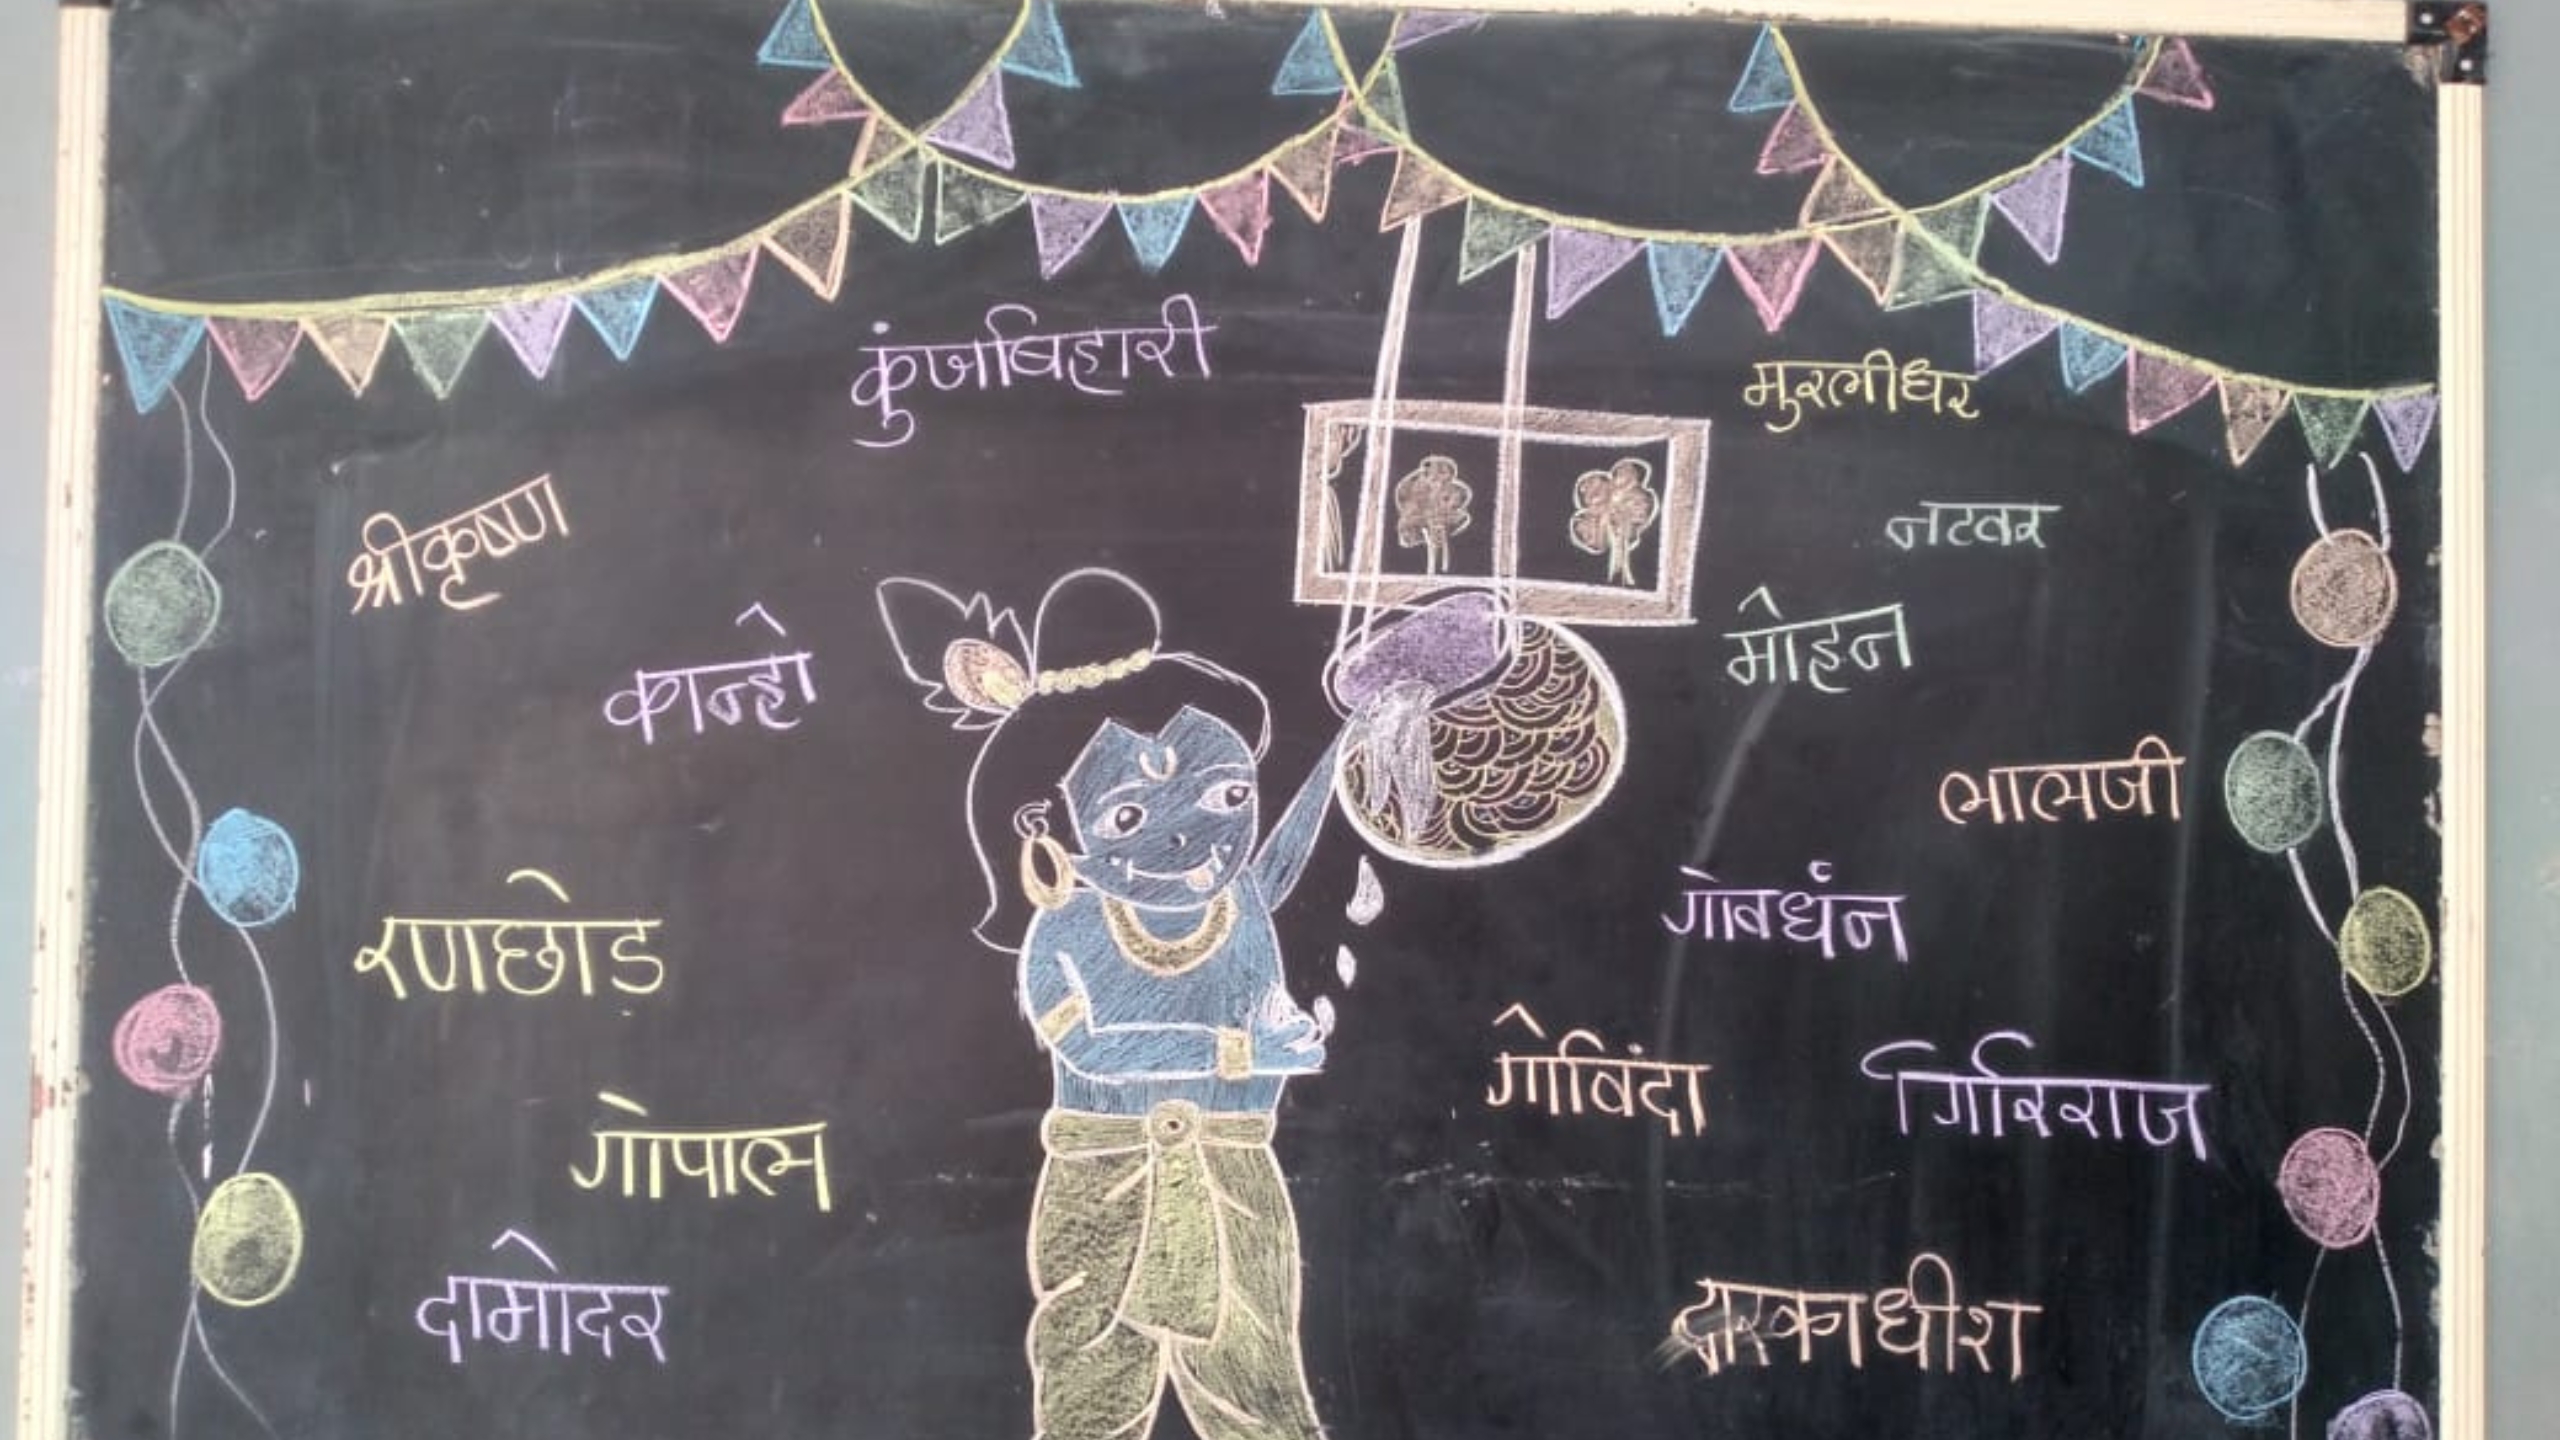 कुंजबिहारी
मुरलीधर
श्रीकृष्ण
नटवर
कान्हो
मोहन
लालजी
रणछोड
गोवर्धन
गोविंदा
गिरिराज
गोपाल
दामोदर
द्वारकाधीश